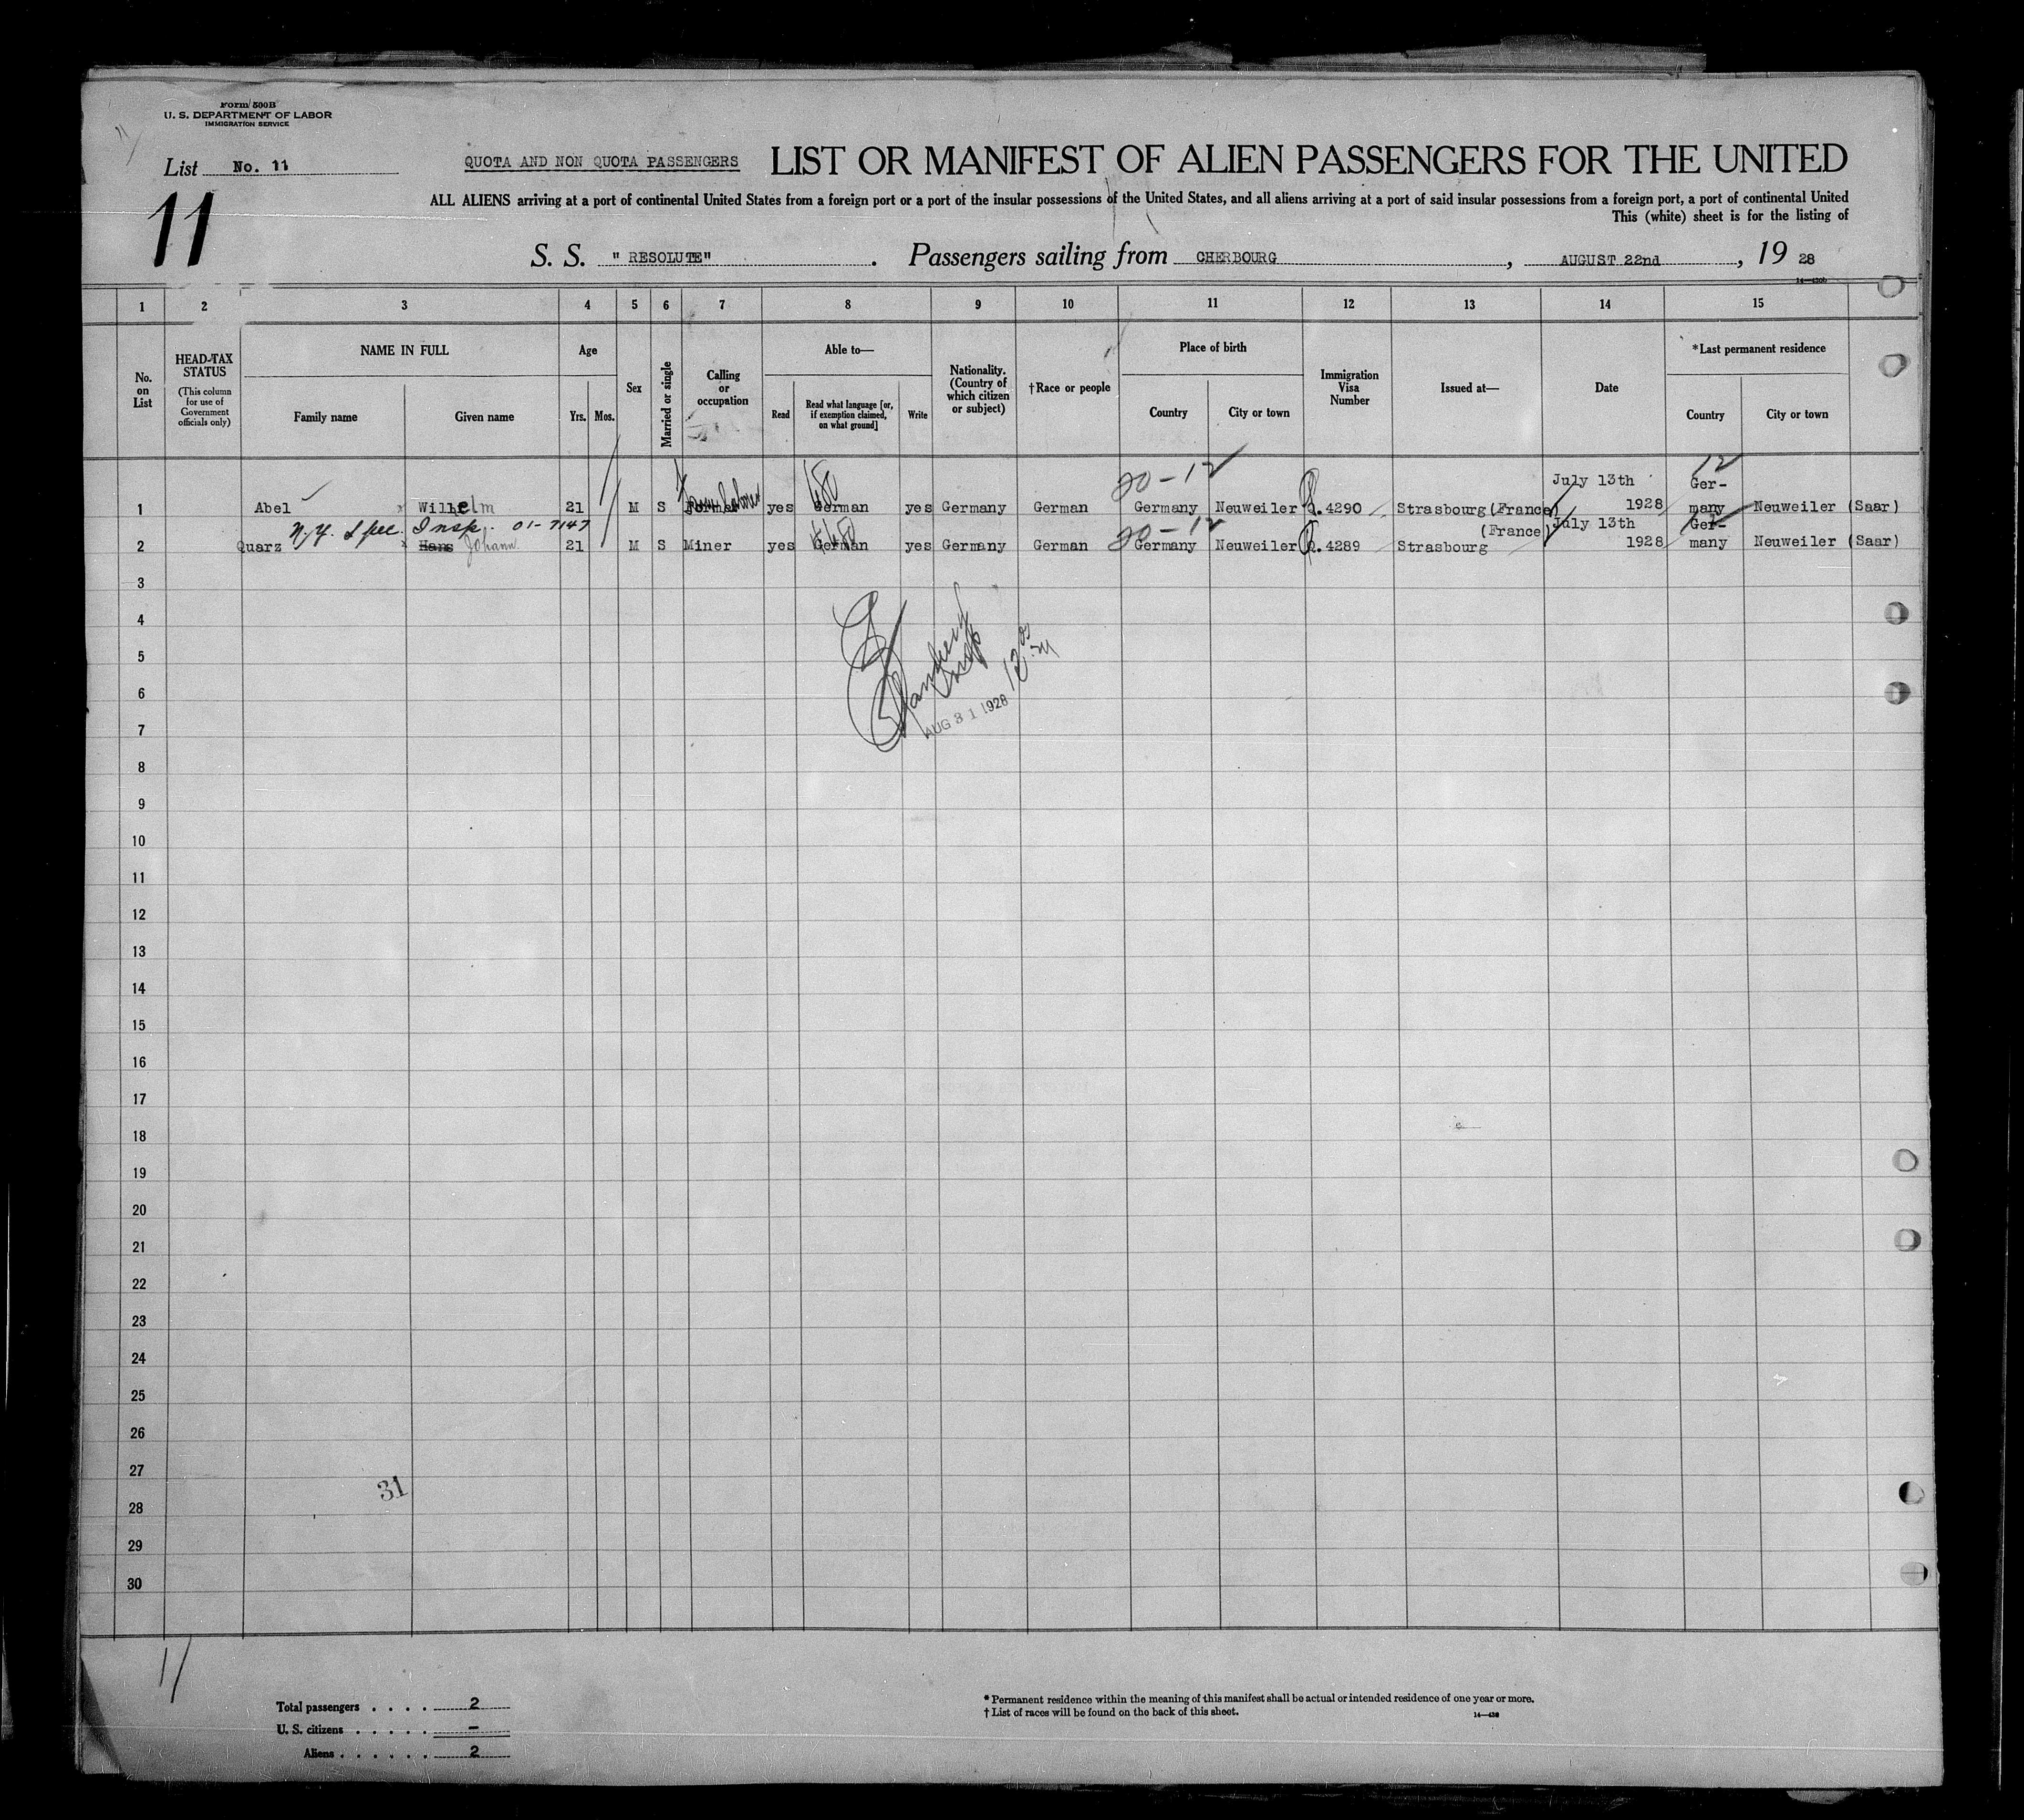 Form 500B
U. S. DEPARTMENT OF LABOR
IMMIGRATION SERVICE
List No. 11
11
QUOTA AND NON QUOTA PASSENGERS LIST OR MANIFEST OF ALIEN PASSENGERS FOR THE UNITED
ALL ALIENS arriving at a port of continental United States from a foreign port or a port of the insular possessions of the United States, and all aliens arriving at a port of said insular possessions from a foreign port, a port of continental United
This (white) sheet is for the listing of
S. S. " RESOLUTE" . Passengers sailing from CHERBOURG , AUGUST 22nd , 19 28
1 2 3 4 5 6 7 8 9 10 11 12 13 14 15
No. on List
HEAD-TAX STATUS
(This column for use of Government officials only)
NAME IN FULL
Family name Given name
Age
Yrs. Mos.
Sex
Married or single
Calling or occupation
Able to—
Read
Read what language [or, if exemption claimed, on what ground]
Write
Nationality. (Country of which citizen or subject)
†Race or people
Place of birth
Country City or town
Immigration Visa Number
Issued at—
Date
*Last permanent residence
Country City or town
20-12 July 13th 12 Ger-
1 Abel Wilhelm 21 M S yes German yes Germany German Germany Neuweiler Q.4290 Strasbourg (France) 1928 many Neuweiler (Saar)
N.Y. Spec. Insp. 01-7147
20-12 (France) July 13th Ger-
2 Quarz Hans Johann 21 M S Miner yes German yes Germany German Germany Neuweiler Q.4289 Strasbourg 1928 many Neuweiler (Saar)
3
4
5
6
7
8
9
10
11
12
13
14
15
16
17
18
19
20
21
22
23
24
25
26
27
28
29
30
Insp
AUG 31 1928
31
11
Total passengers . . . . 2
U. S. citizens . . . . . –
Aliens . . . . . . 2
* Permanent residence within the meaning of this manifest shall be actual or intended residence of one year or more.
† List of races will be found on the back of this sheet.
14—430